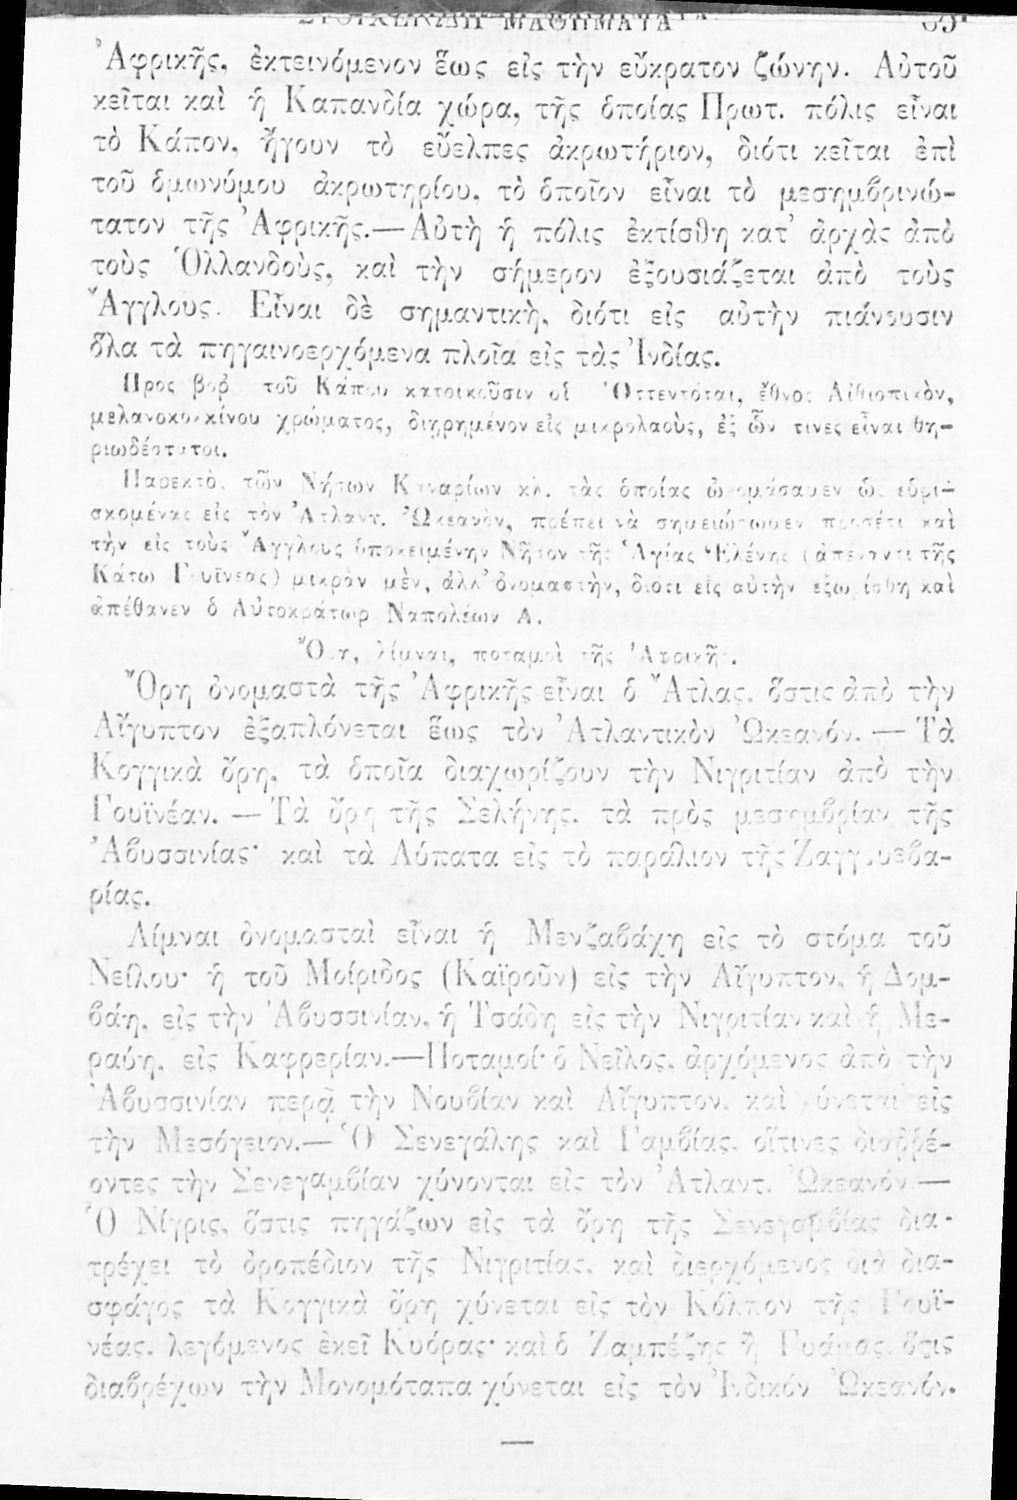 ΣΤΟΙΧΕΙΩΔΗ ΜΑΘΗΜΑΤΑ
Ἀφρικῆς, ἐκτεινόμενον ἕως εἰς τὴν εὔκρατον ζώνην. Αὐτοῦ
κεῖται καὶ ἡ Καπανδία χώρα, τῆς ὁποίας Πρωτ. πόλις εἶναι
τὸ Κάπον, ἤγουν τὸ εὔελπες ἀκρωτήριον, διότι κεῖται ἐπὶ
τοῦ ὁμωνύμου ἀκρωτηρίου, τὸ ὁποῖον εἶναι τὸ μεσημβρινώ-
τατον τῆς Ἀφρικῆς.—Αὐτὴ ἡ πόλις ἐκτίσθη κατ' ἀρχὰς ἀπὸ
τοὺς Ὁλλανδοὺς, καὶ τὴν σήμερον ἐξουσιάζεται ἀπὸ τοὺς
Ἄγγλους. Εἶναι δὲ σημαντικὴ, διότι εἰς αὐτὴν πιάνουσιν
ὅλα τὰ πηγαινοερχόμενα πλοῖα εἰς τὰς Ἰνδίας.
Πρὸς βοῤ. τοῦ Κάπου κατοικοῦσιν οἱ Ὁττεντόται, ἔθνος Αἰθιοπικὸν,
μελανοκοκκίνου χρώματος, διῃρημένον εἰς μικρολαοὺς, ἐξ ὧν τινες εἶναι θη-
ριωδέστατοι.
Παρεκτὸς τῶν Νήσων Καναρίων κλ. τὰς ὁποίας ὠνομάσαμεν ὡς εὑρι-
σκομένας εἰς τὸν Ἀτλαντ. Ὠκεανὸν, πρέπει νὰ σημειώσωμεν προσέτι καὶ
τὴν εἰς τοὺς Ἄγγλους ὑποκειμένην Νῆσον τῆς Ἁγίας Ἑλένης (ἀπέναντι τῆς
Κάτω Γουϊνέας) μικρὰν μὲν, ἀλλ' ὀνομαστὴν, διότι εἰς αὐτὴν ἐξωρίσθη καὶ
ἀπέθανεν ὁ Αὐτοκράτωρ Ναπολέων Α.
Ὄρη, λίμναι, ποταμοὶ τῆς Ἀφρικῆς.
Ὄρη ὀνομαστὰ τῆς Ἀφρικῆς εἶναι ὁ Ἄτλας, ὅστις ἀπὸ τὴν
Αἴγυπτον ἐξαπλόνεται ἕως τὸν Ἀτλαντικὸν Ὠκεανόν. — Τὰ
Κογγικὰ ὄρη, τὰ ὁποῖα διαχωρίζουν τὴν Νιγριτίαν ἀπὸ τὴν
Γουϊνέαν. — Τὰ ὄρη τῆς Σελήνης, τὰ πρὸς μεσημβρίαν τῆς
Ἀβυσσινίας· καὶ τὰ Λύπατα εἰς τὸ παράλιον τῆς Ζαγγουεβα-
ρίας.
Λίμναι ὀνομασταὶ εἶναι ἡ Μενζαβάχη εἰς τὸ στόμα τοῦ
Νείλου· ἡ τοῦ Μοίριδος (Καϊροῦν) εἰς τὴν Αἴγυπτον, ἡ Δομ-
βάη, εἰς τὴν Ἀβυσσινίαν, ἡ Τσάδη εἰς τὴν Νιγριτίαν καὶ ἡ Με-
ραύη, εἰς Καφρερίαν.—Ποταμοί· ὁ Νεῖλος, ἀρχόμενος ἀπὸ τὴν
Ἀβυσσινίαν περᾷ τὴν Νουβίαν καὶ Αἴγυπτον, καὶ χύνεται εἰς
τὴν Μεσόγειον.— Ὁ Σενεγάλης καὶ Γαμβίας, οἵτινες διαῤῥέ-
οντες τὴν Σενεγαμβίαν χύνονται εἰς τὸν Ἀτλαντ. Ὠκεανόν.—
Ὁ Νίγρις, ὅστις πηγάζων εἰς τὰ ὄρη τῆς Σενεγαμβίας δια-
τρέχει τὸ ὀροπέδιον τῆς Νιγριτίας, καὶ διερχόμενος διὰ δια-
σφάγος τὰ Κογγικὰ ὄρη χύνεται εἰς τὸν Κόλπον τῆς Γουϊ-
νέας, λεγόμενος ἐκεῖ Κυόρας· καὶ ὁ Ζαμπέζης ἢ Γυάμας, ὅστις
διαβρέχων τὴν Μονομόταπα χύνεται εἰς τὸν Ἰνδικόν Ὠκεανόν.